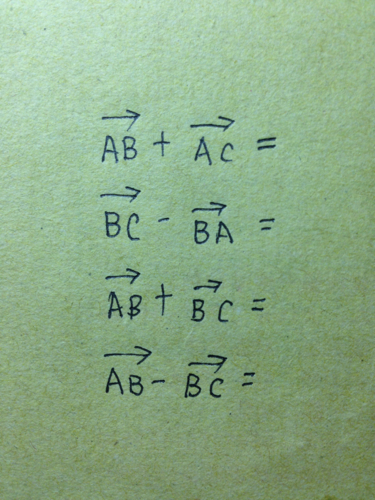 $\overrightarrow{AB} + \overrightarrow{AC} =$
$\overrightarrow{BC} - \overrightarrow{BA} =$
$\overrightarrow{AB} + \overrightarrow{BC} =$
$\overrightarrow{AB} - \overrightarrow{BC} =$